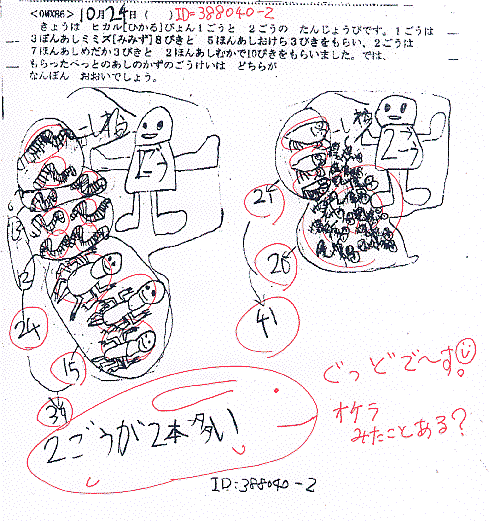 <0MXR6> 10月24日( ) ID=388040-2
きょうは ヒカル[ひかる]ぴょん1ごうと 2ごうの たんじょうびです。1ごうは
3ぼんあしミミズ[みみず]8ぴきと 5ほんあしおけら3びきをもらい、2ごうは
7ほんあしめだか3びきと 2ほんあしむかで10ぴきをもらいました。では、
もらったぺっとのあしのかずのごうけいは どちらが
なんぼん おおいでしょう。
1ごう
2ごう
24
15
39
21
20
41
2ごうが2本多い
ぐっどで〜す。
オケラ
みたことある?
ID:388040-2